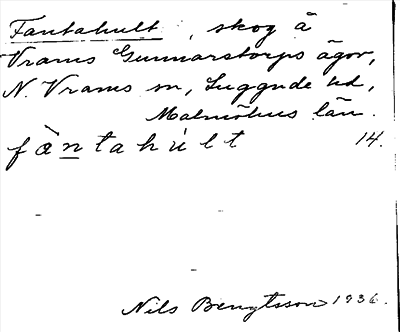 Fantahult, skog å
Vrams Gunnarstorps ägor,
N. Vrams sn, Luggude hd,
Malmöhus län.
fàntahùlt 14.
Nils Bengtsson 1936.